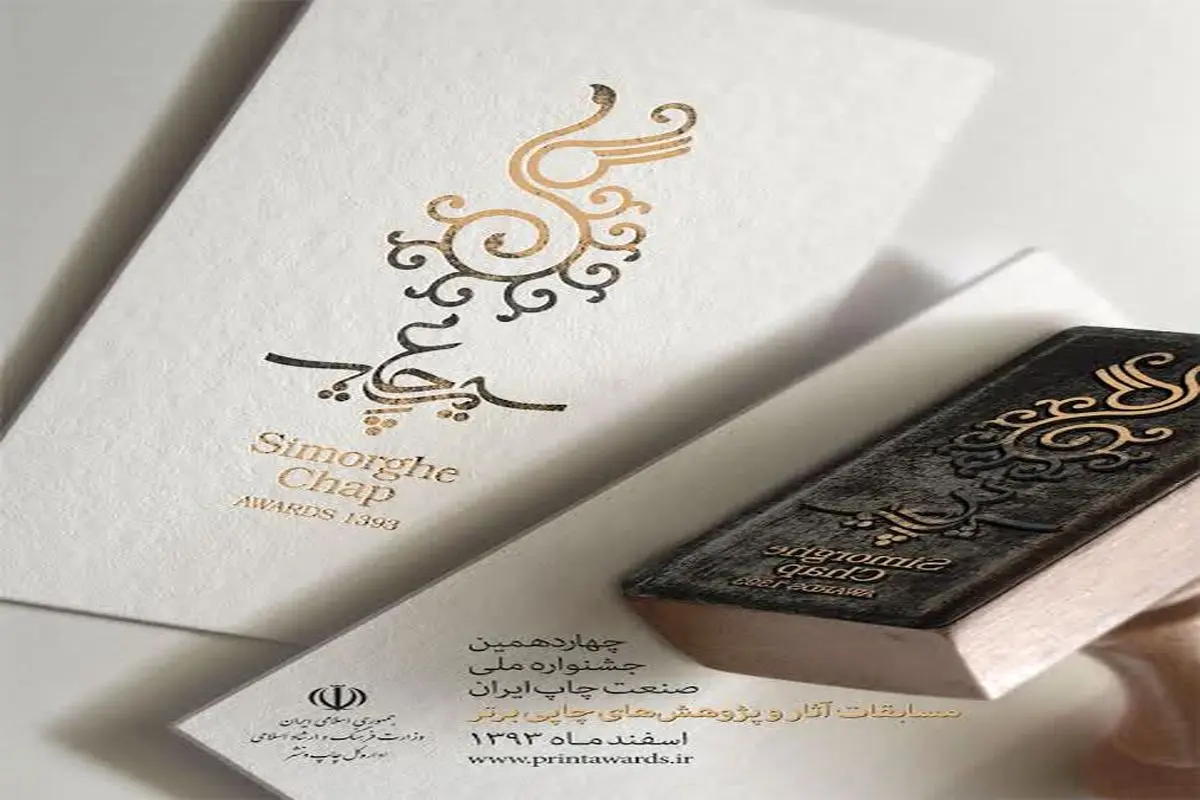 سیمرغ چاپ
Simorghe
Chap
AWARDS 1393
Simorghe
Chap
AWARDS 1393
چهاردهمین
جشنواره ملی
صنعت چاپ ایران
مسابقات آثار و پژوهش‌های چاپی برتر
اسفند ماه ۱۳۹۳
www.printawards.ir
جمهوری اسلامی ایران
وزارت فرهنگ و ارشاد اسلامی
اداره کل چاپ و نشر